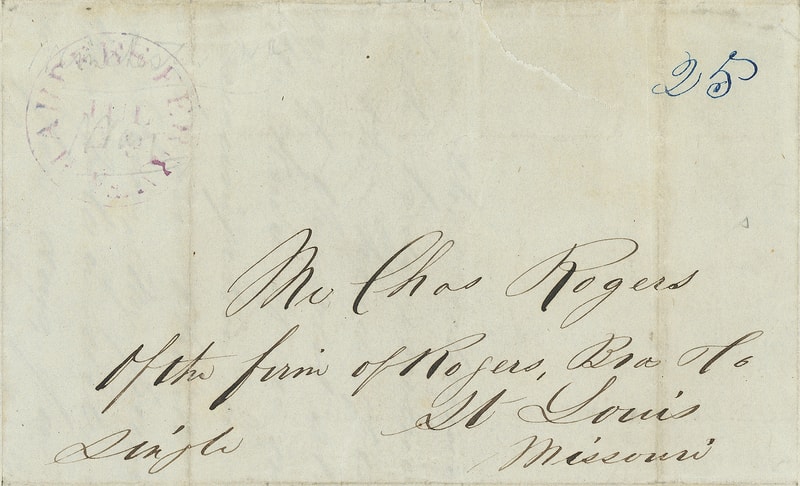 25
Mr Chas Rogers
Of the firm of Rogers, Bro & Co
St Louis
single
Missouri